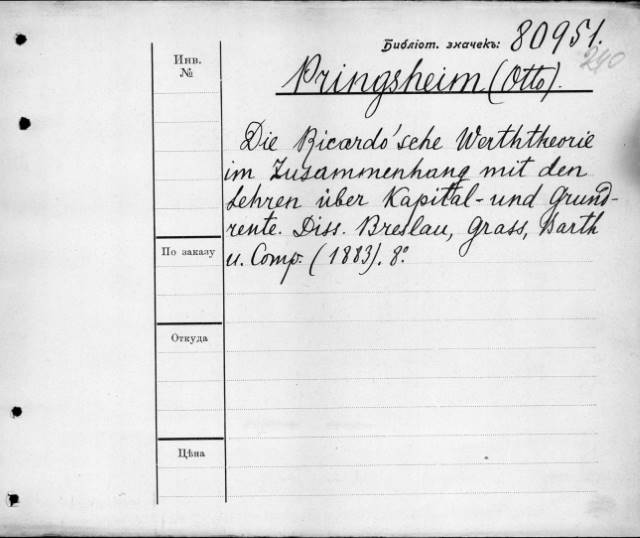 Библіот. значекъ: 80951.
240
Инв.
№
Pringsheim (Otto).
Die Ricardo'sche Werttheorie
im Zusammenhang mit den
Lehren über Kapital- und Grund-
rente. Diss. Breslau, Grass, Barth
u. Comp. (1883). 8°.
По заказу
Откуда
Цѣна